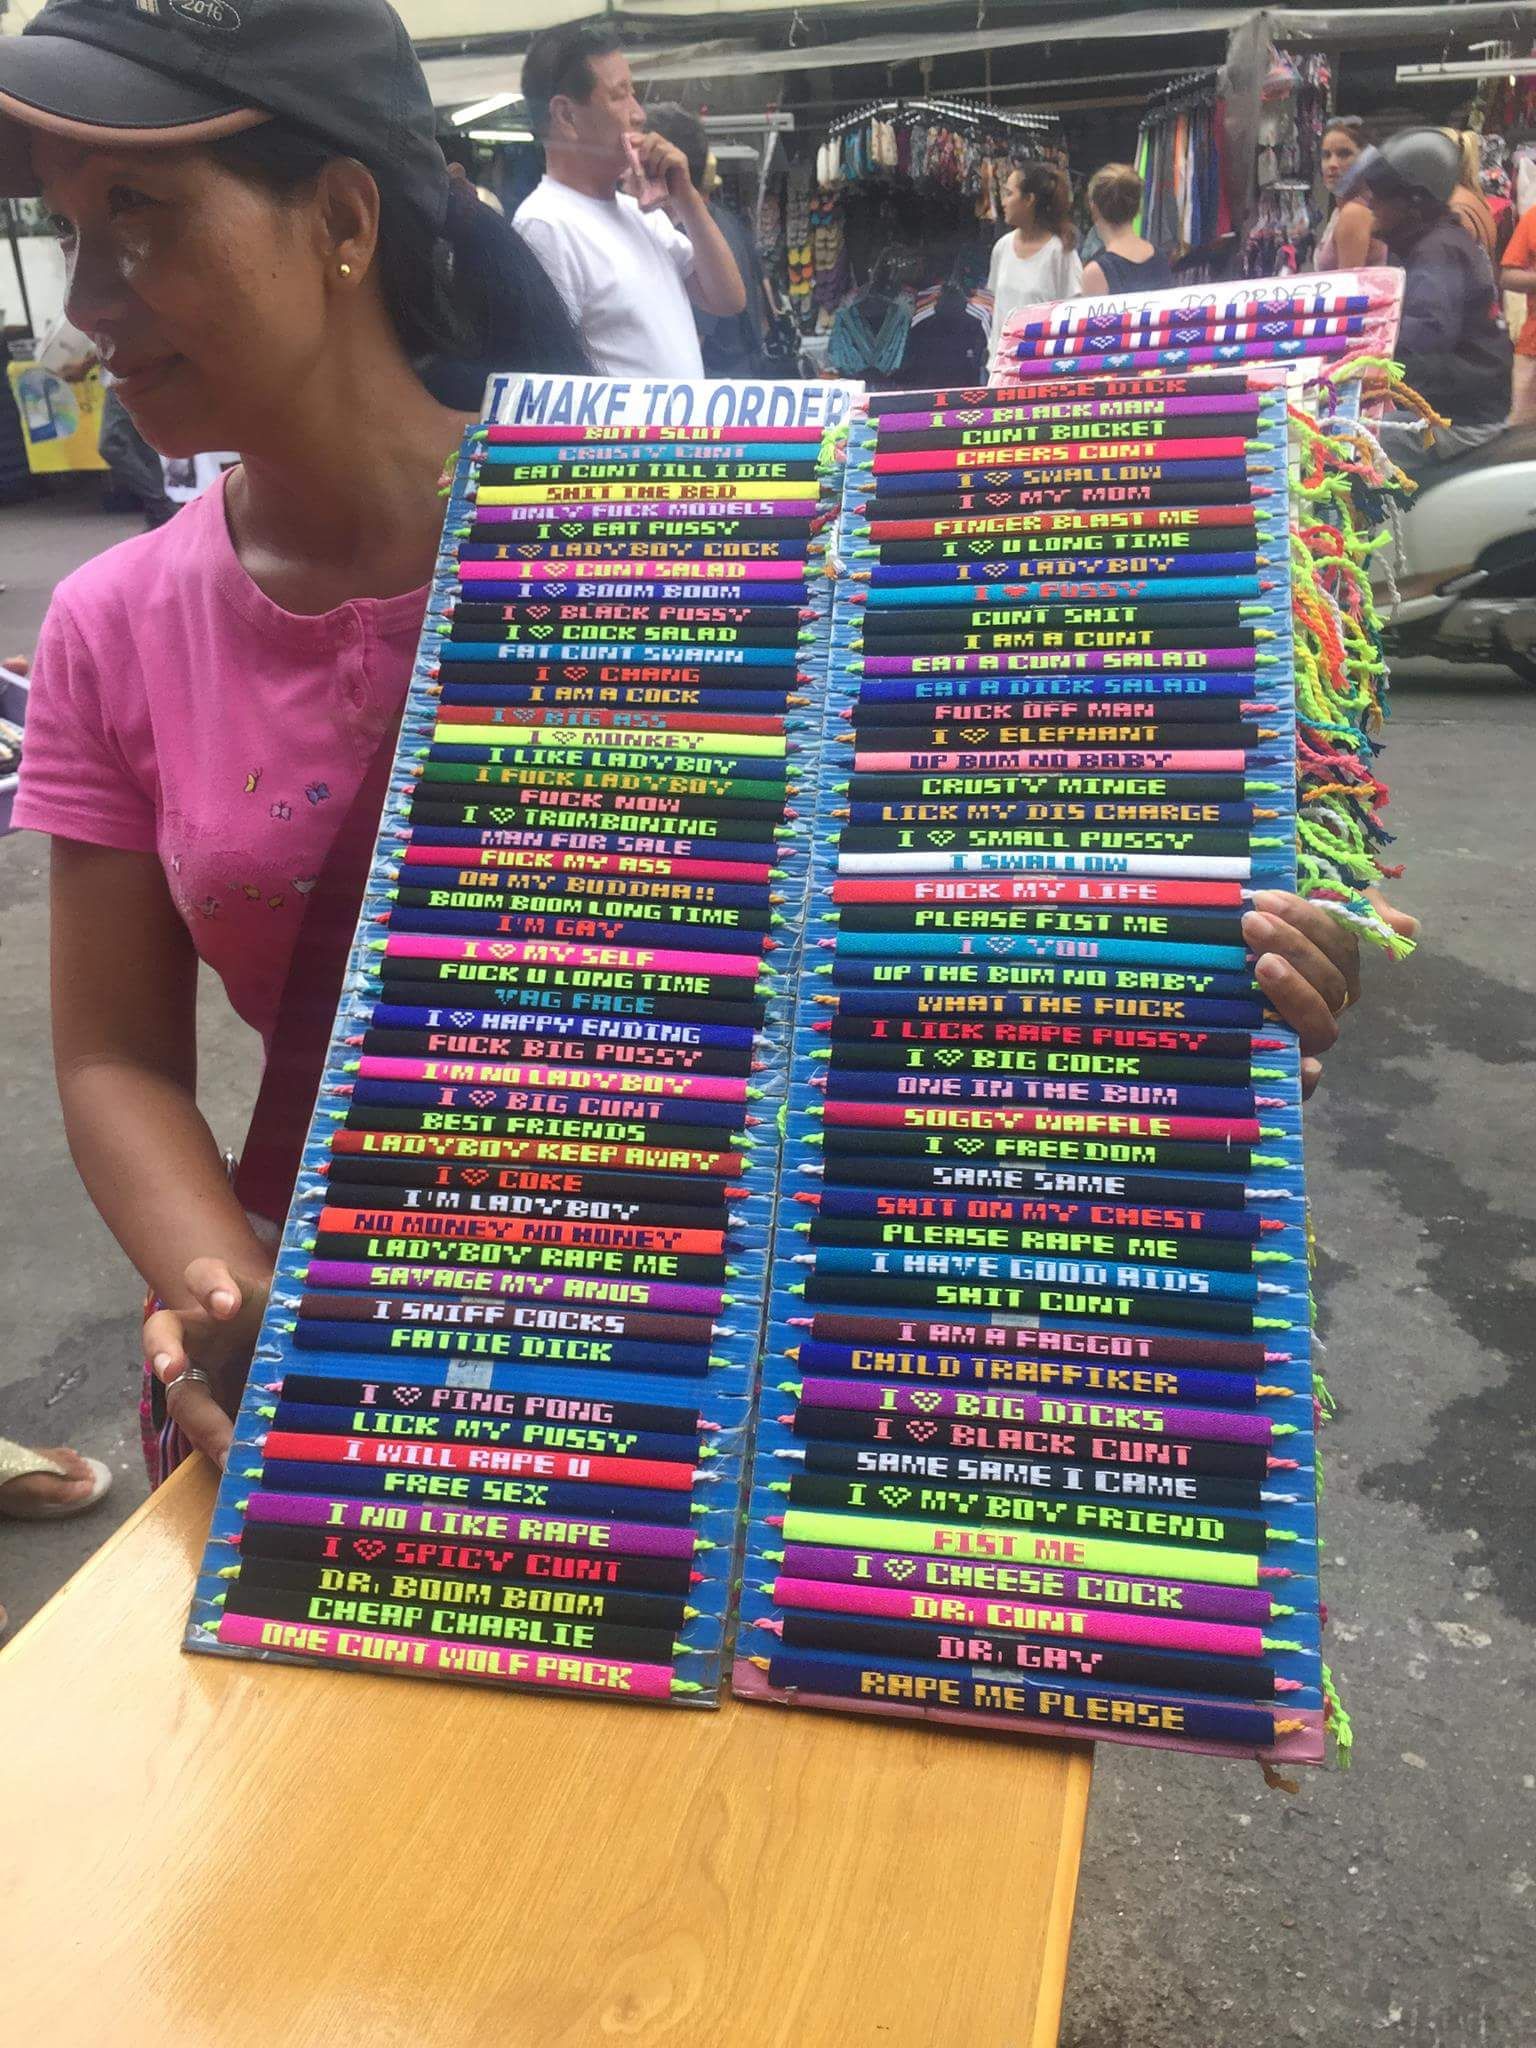 2016
I MAKE TO ORDER
BUTT SLUT
CRUSTY CUNT
EAT CUNT TILL I DIE
SHIT THE BED
ONLY FUCK MODELS
I ♡ EAT PUSSY
I ♡ LADYBOY COCK
I ♡ CUNT SALAD
I ♡ BOOM BOOM
I ♡ BLACK PUSSY
I ♡ COCK SALAD
FAT CUNT SWANN
I ♡ CHANG
I AM A COCK
I ♡ BIG ASS
I ♡ MONKEY
I LIKE LADYBOY
I FUCK LADYBOY
FUCK NOW
I ♡ TROMBONING
MAN FOR SALE
FUCK MY ASS
OH MY BUDDHA!!
BOOM BOOM LONG TIME
I'M GAY
I ♡ MY SELF
FUCK U LONG TIME
VAG FACE
I ♡ HAPPY ENDING
FUCK BIG PUSSY
I'M NO LADYBOY
I ♡ BIG CUNT
BEST FRIENDS
LADYBOY KEEP AWAY
I ♡ COKE
I'M LADYBOY
NO MONEY NO HONEY
LADYBOY RAPE ME
SAVAGE MY ANUS
I SNIFF COCKS
FATTIE DICK
I ♡ PING PONG
LICK MY PUSSY
I WILL RAPE U
FREE SEX
I NO LIKE RAPE
I ♡ SPICY CUNT
DR. BOOM BOOM
CHEAP CHARLIE
ONE CUNT WOLF PACK
I MAKE TO ORDER
I ♡ HORSE DICK
I ♡ BLACK MAN
CUNT BUCKET
CHEERS CUNT
I ♡ SWALLOW
I ♡ MY MOM
FINGER BLAST ME
I ♡ U LONG TIME
I ♡ LADYBOY
I ♥ PUSSY
CUNT SHIT
I AM A CUNT
EAT A CUNT SALAD
EAT A DICK SALAD
FUCK OFF MAN
I ♡ ELEPHANT
UP BUM NO BABY
CRUSTY MINGE
LICK MY DIS CHARGE
I ♡ SMALL PUSSY
I SWALLOW
FUCK MY LIFE
PLEASE FIST ME
I ♡ YOU
UP THE BUM NO BABY
WHAT THE FUCK
I LICK RAPE PUSSY
I ♡ BIG COCK
ONE IN THE BUM
SOGGY WAFFLE
I ♡ FREEDOM
SAME SAME
SHIT ON MY CHEST
PLEASE RAPE ME
I HAVE GOOD AIDS
SHIT CUNT
I AM A FAGGOT
CHILD TRAFFIKER
I ♡ BIG DICKS
I ♡ BLACK CUNT
SAME SAME I CAME
I ♡ MY BOY FRIEND
FIST ME
I ♡ CHEESE COCK
DR. CUNT
DR. GAY
RAPE ME PLEASE